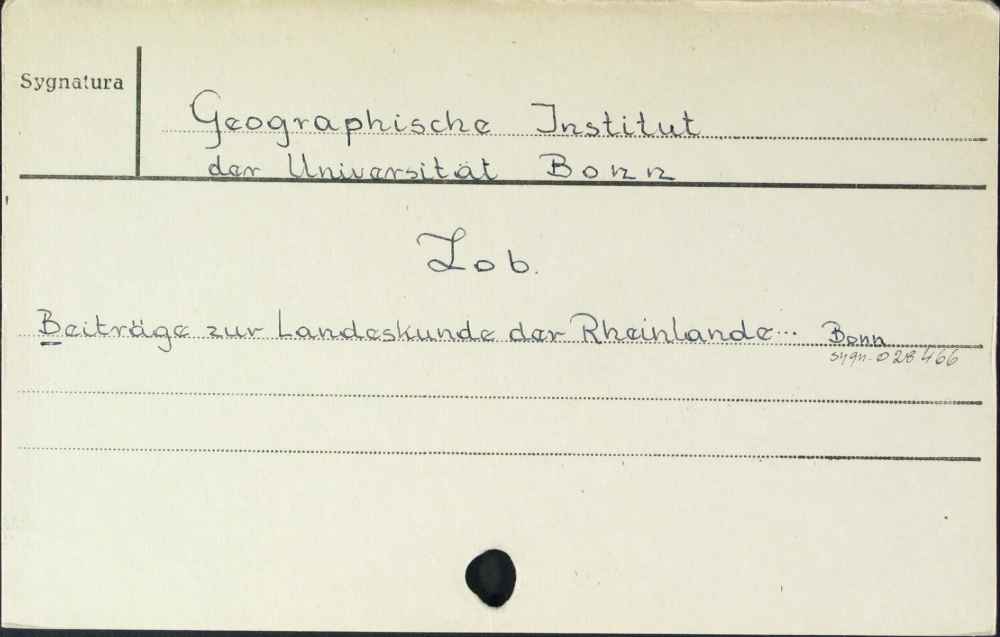 Sygnatura
Geographische Institut
der Universität Bonn
Zob.
Beiträge zur Landeskunde der Rheinlande... Bonn
sygn. 028466